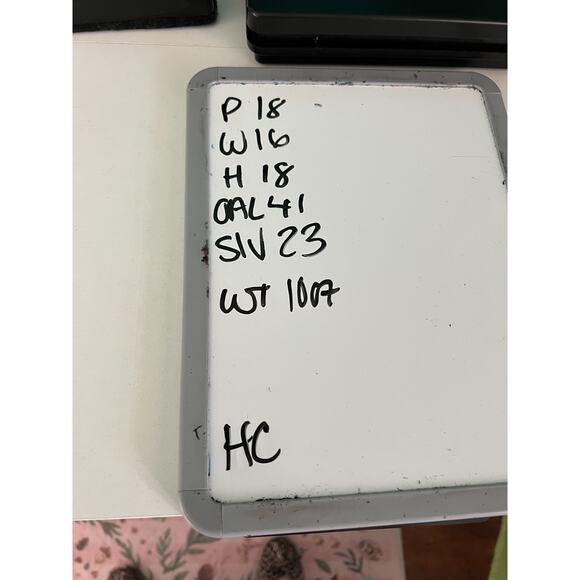 P 18
W 16
H 18
OAL 41
SlV 23
WT 10oz
HC